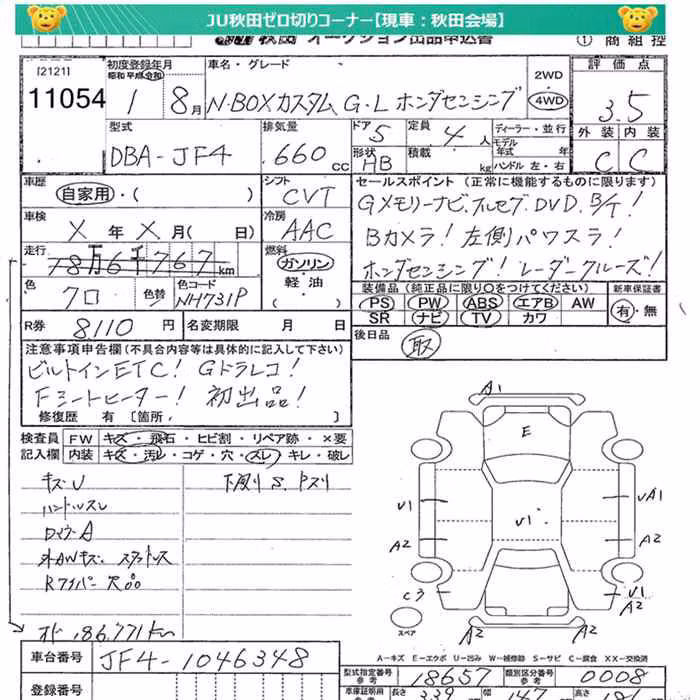 JU秋田ゼロ切りコーナー【現車：秋田会場】
秋田 オークション出品申込書 ① 商組控
[2121]
11054
初度登録年月
昭和 平成 令和
1 8月
車名・グレード
N-BOXカスタム G・L ホンダセンシング
2WD
4WD
評価点
3.5
外装 内装
C C
型式
DBA-JF4
排気量
660 CC
ドア 5
定員 4人
形状 HB
積載 kg
ディーラー・並行
モデル年式 年
ハンドル 左・右
車歴
自家用・( )
シフト
CVT
車検
X 年 X 月( 日)
冷房
AAC
走行
78万6千767 km
燃料
ガソリン・軽油・( )
色
クロ
色替
色コード
NH731P
R券 8110 円
名変期限 月 日
セールスポイント (正常に機能するものに限ります)
Gメモリーナビ、フルセグ、DVD、B/T!
Bカメラ! 左側パワスラ!
ホンダセンシング! レーダークルーズ!
装備品 (純正品に限り○をつけてください)
PS PW ABS エアB AW
SR ナビ TV カワ
新車保証書
有・無
後日品 取
注意事項申告欄 (不具合内容等は具体的に記入して下さい)
ビルトインETC! Gドラレコ!
Fシートヒーター! 初出品!
修復歴 有 [箇所. ]
検査員記入欄
FW キズ・飛石・ヒビ割・リペア跡・×要
内装 キズ・汚レ・コゲ・穴・スレ・キレ・破レ
キズU
ハンドルスレ
DマクA
外AWキズ スタッドレス
Rワイパー欠品
下廻りS、Pスリ
メーター 186.771km
A1
E
U1
U1
UA1
A2
A2
C3
U1
A2
A2
A2
スペア
A-キズ E-エクボ U-凹み W-補修跡 S-サビ C-腐食 XX-交換済
車台番号 JF4-1046348
登録番号
型式指定番号 参考 18657
類別区分番号 参考 0008
車庫証明用 参考 長さ 339 幅 147 高さ 181